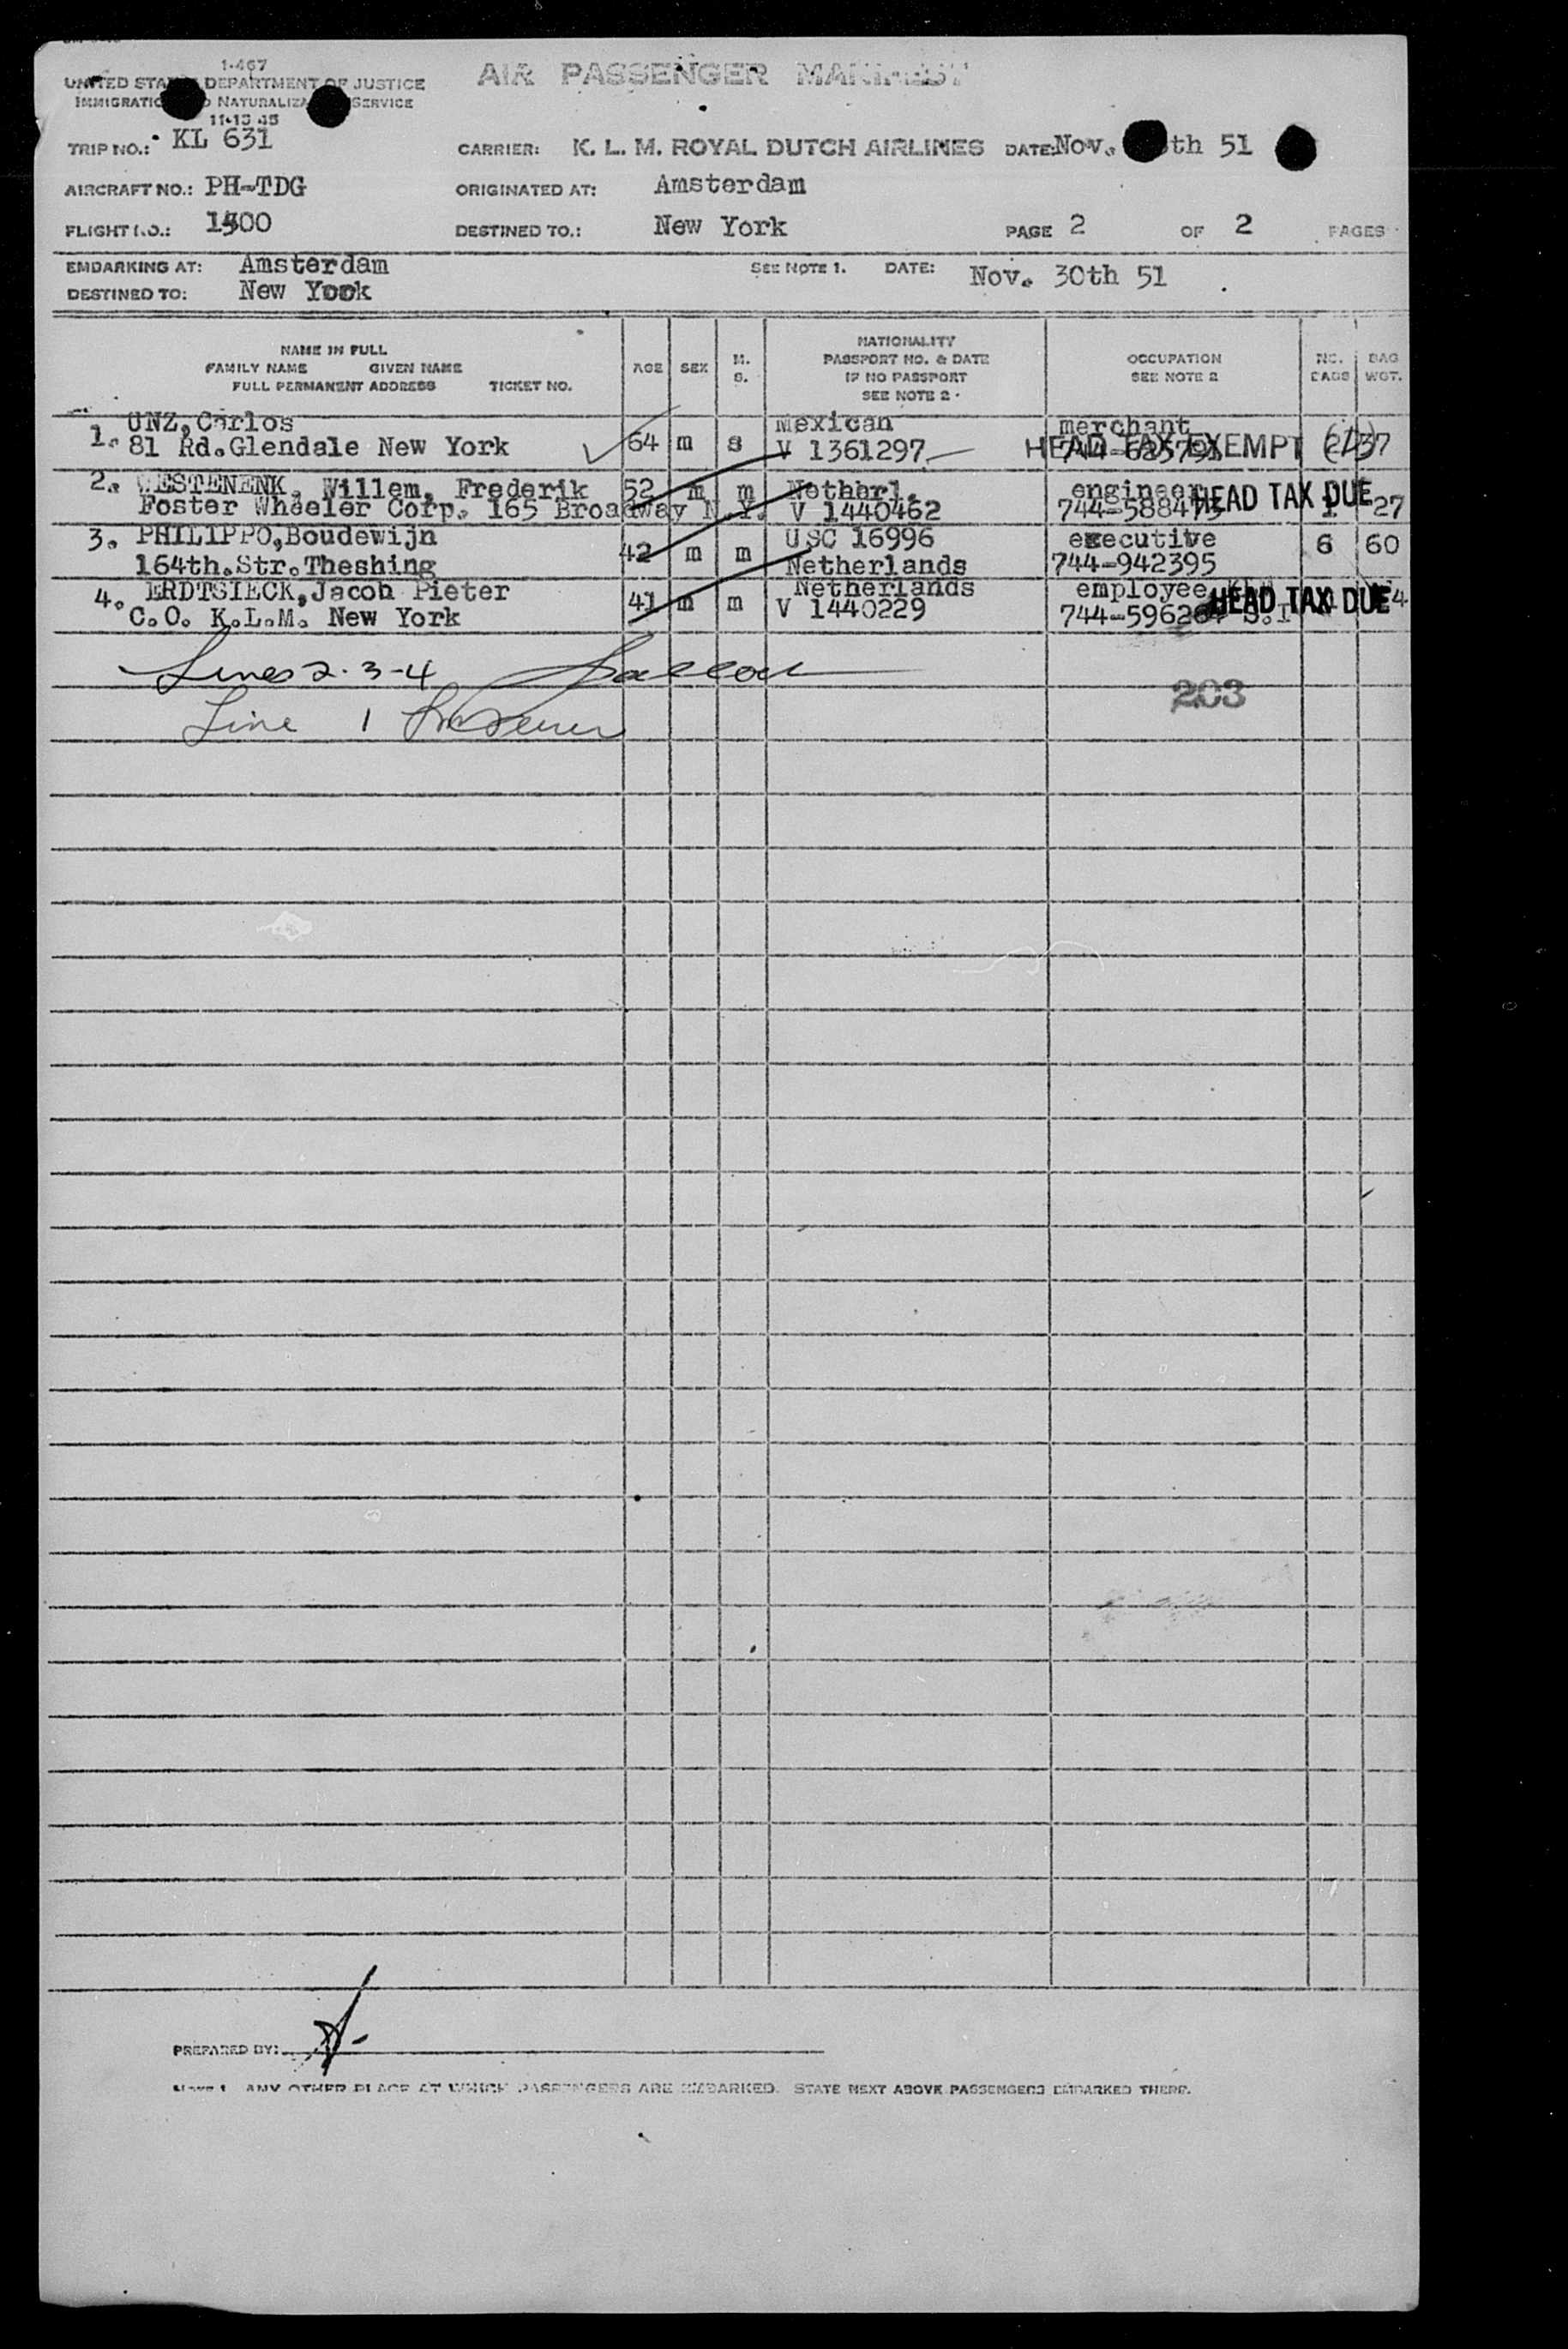 1-467
UNITED STATES DEPARTMENT OF JUSTICE
AIR PASSENGER MANIFEST
IMMIGRATION AND NATURALIZATION SERVICE
11-13 45
TRIP NO.: KL 631 CARRIER: K. L. M. ROYAL DUTCH AIRLINES DATE: Nov. th 51
AIRCRAFT NO.: PH-TDG ORIGINATED AT: Amsterdam
FLIGHT NO.: 1500 DESTINED TO.: New York PAGE 2 OF 2 PAGES
EMBARKING AT: Amsterdam SEE NOTE 1. DATE: Nov. 30th 51
DESTINED TO: New Yook
NAME IN FULL
FAMILY NAME GIVEN NAME
FULL PERMANENT ADDRESS TICKET NO.
AGE
SEX
M.
S.
NATIONALITY
PASSPORT NO. & DATE
IF NO PASSPORT
SEE NOTE 2
OCCUPATION
SEE NOTE 2
NO.
BAGS
BAG
WGT.
1. UNZ,Carlos Mexican merchant
81 Rd.Glendale New York 64 m s V 1361297 HEAD TAX EXEMPT 37
2. WESTENENK, Willem, Frederik 52 m m Netherl. engineer HEAD TAX DUE
Foster Wheeler Corp. 165 Broadway N.Y. V 1440462 744-588473 1 27
3. PHILIPPO,Boudewijn 42 m m USC 16996 executive 6 60
164th.Str.Theshing Netherlands 744-942395
4. ERDTSIECK,Jacob Pieter 41 m m Netherlands employee HEAD TAX DUE
C.O. K.L.M. New York V 1440229
Lines 2-3-4
203
Line 1
PREPARED BY:
NOTE 1 ANY OTHER PLACE AT WHICH PASSENGERS ARE EMBARKED. STATE NEXT ABOVE PASSENGERS EMBARKED THERE.